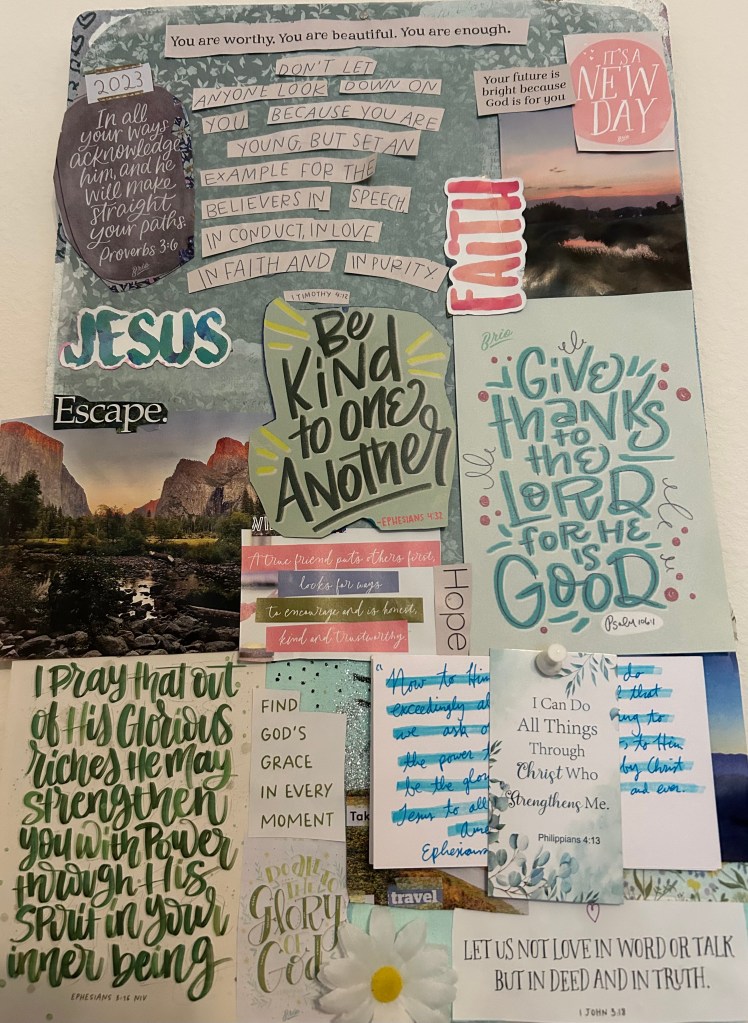 You are worthy. You are beautiful. You are enough.
2023
In all
your ways
acknowledge
him, and he
will make
straight
your paths.
Proverbs 3:6
Brio
DON'T LET
ANYONE LOOK DOWN ON
YOU BECAUSE YOU ARE
YOUNG, BUT SET AN
EXAMPLE FOR THE
BELIEVERS IN SPEECH,
IN CONDUCT, IN LOVE
IN FAITH AND IN PURITY.
1 TIMOTHY 4:12
Your future is
bright because
God is for you
IT'S A
NEW
DAY
Brio
FAITH
JESUS
Escape.
Be
KiND
to one
ANOTHER
-EPHESIANS 4:32
Brio
GIVE
thanks
to
the
LORD
FOR HE
IS
GOOD
Psalm 106:1
A true friend puts others first,
looks for ways
to encourage and is honest,
kind and trustworthy
Hope
I Pray that out
of His Glorious
riches He may
strengthen
you with Power
through His
Spirit in your
inner being
EPHESIANS 3:16 NIV
FIND
GOD'S
GRACE
IN EVERY
MOMENT
Tak
travel
DO ALL
TO THE
GLORY
OF
God
Brio
"Now to Him do
exceedingly that
we ask to
the power to Him
be the by Christ
Jesus to all and ever.
Ephesians
I Can Do
All Things
Through
Christ Who
Strengthens Me.
Philippians 4:13
LET US NOT LOVE IN WORD OR TALK
BUT IN DEED AND IN TRUTH.
1 JOHN 3:18